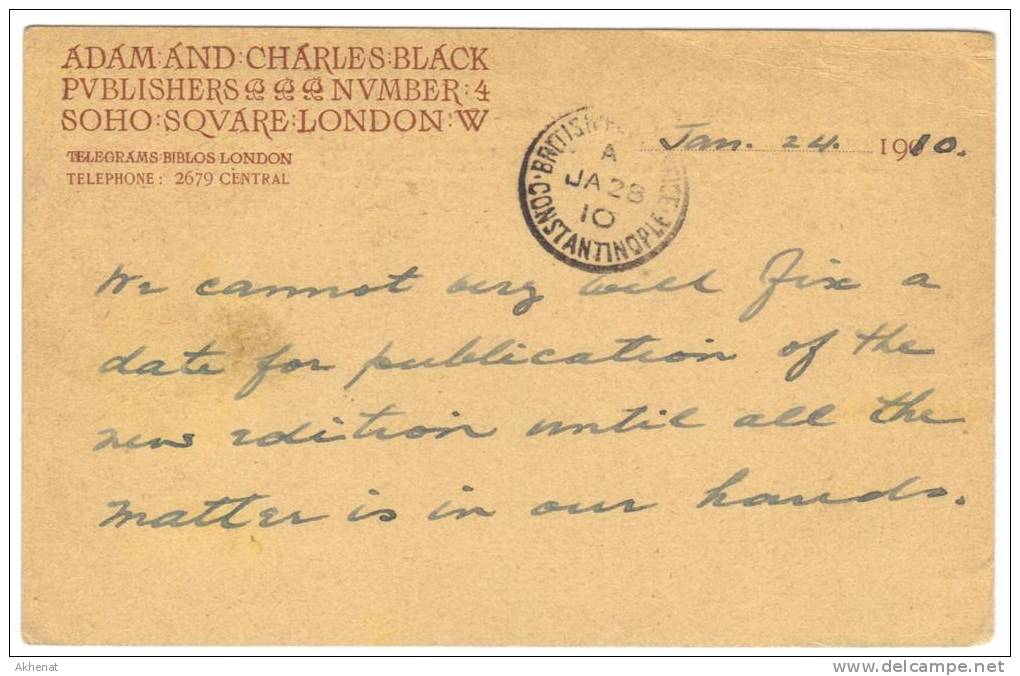 ADAM:AND:CHARLES:BLACK
PVBLISHERS NVMBER:4
SOHO:SQVARE:LONDON:W
TELEGRAMS:BIBLOS:LONDON
TELEPHONE: 2679 CENTRAL
Jan. 24. 1910.
BRITISH
A
JA 28
10
CONSTANTINOPLE
We cannot very well fix a
date for publication of the
new edition until all the
matter is in our hands.
Akhenat
www.delcampe.net